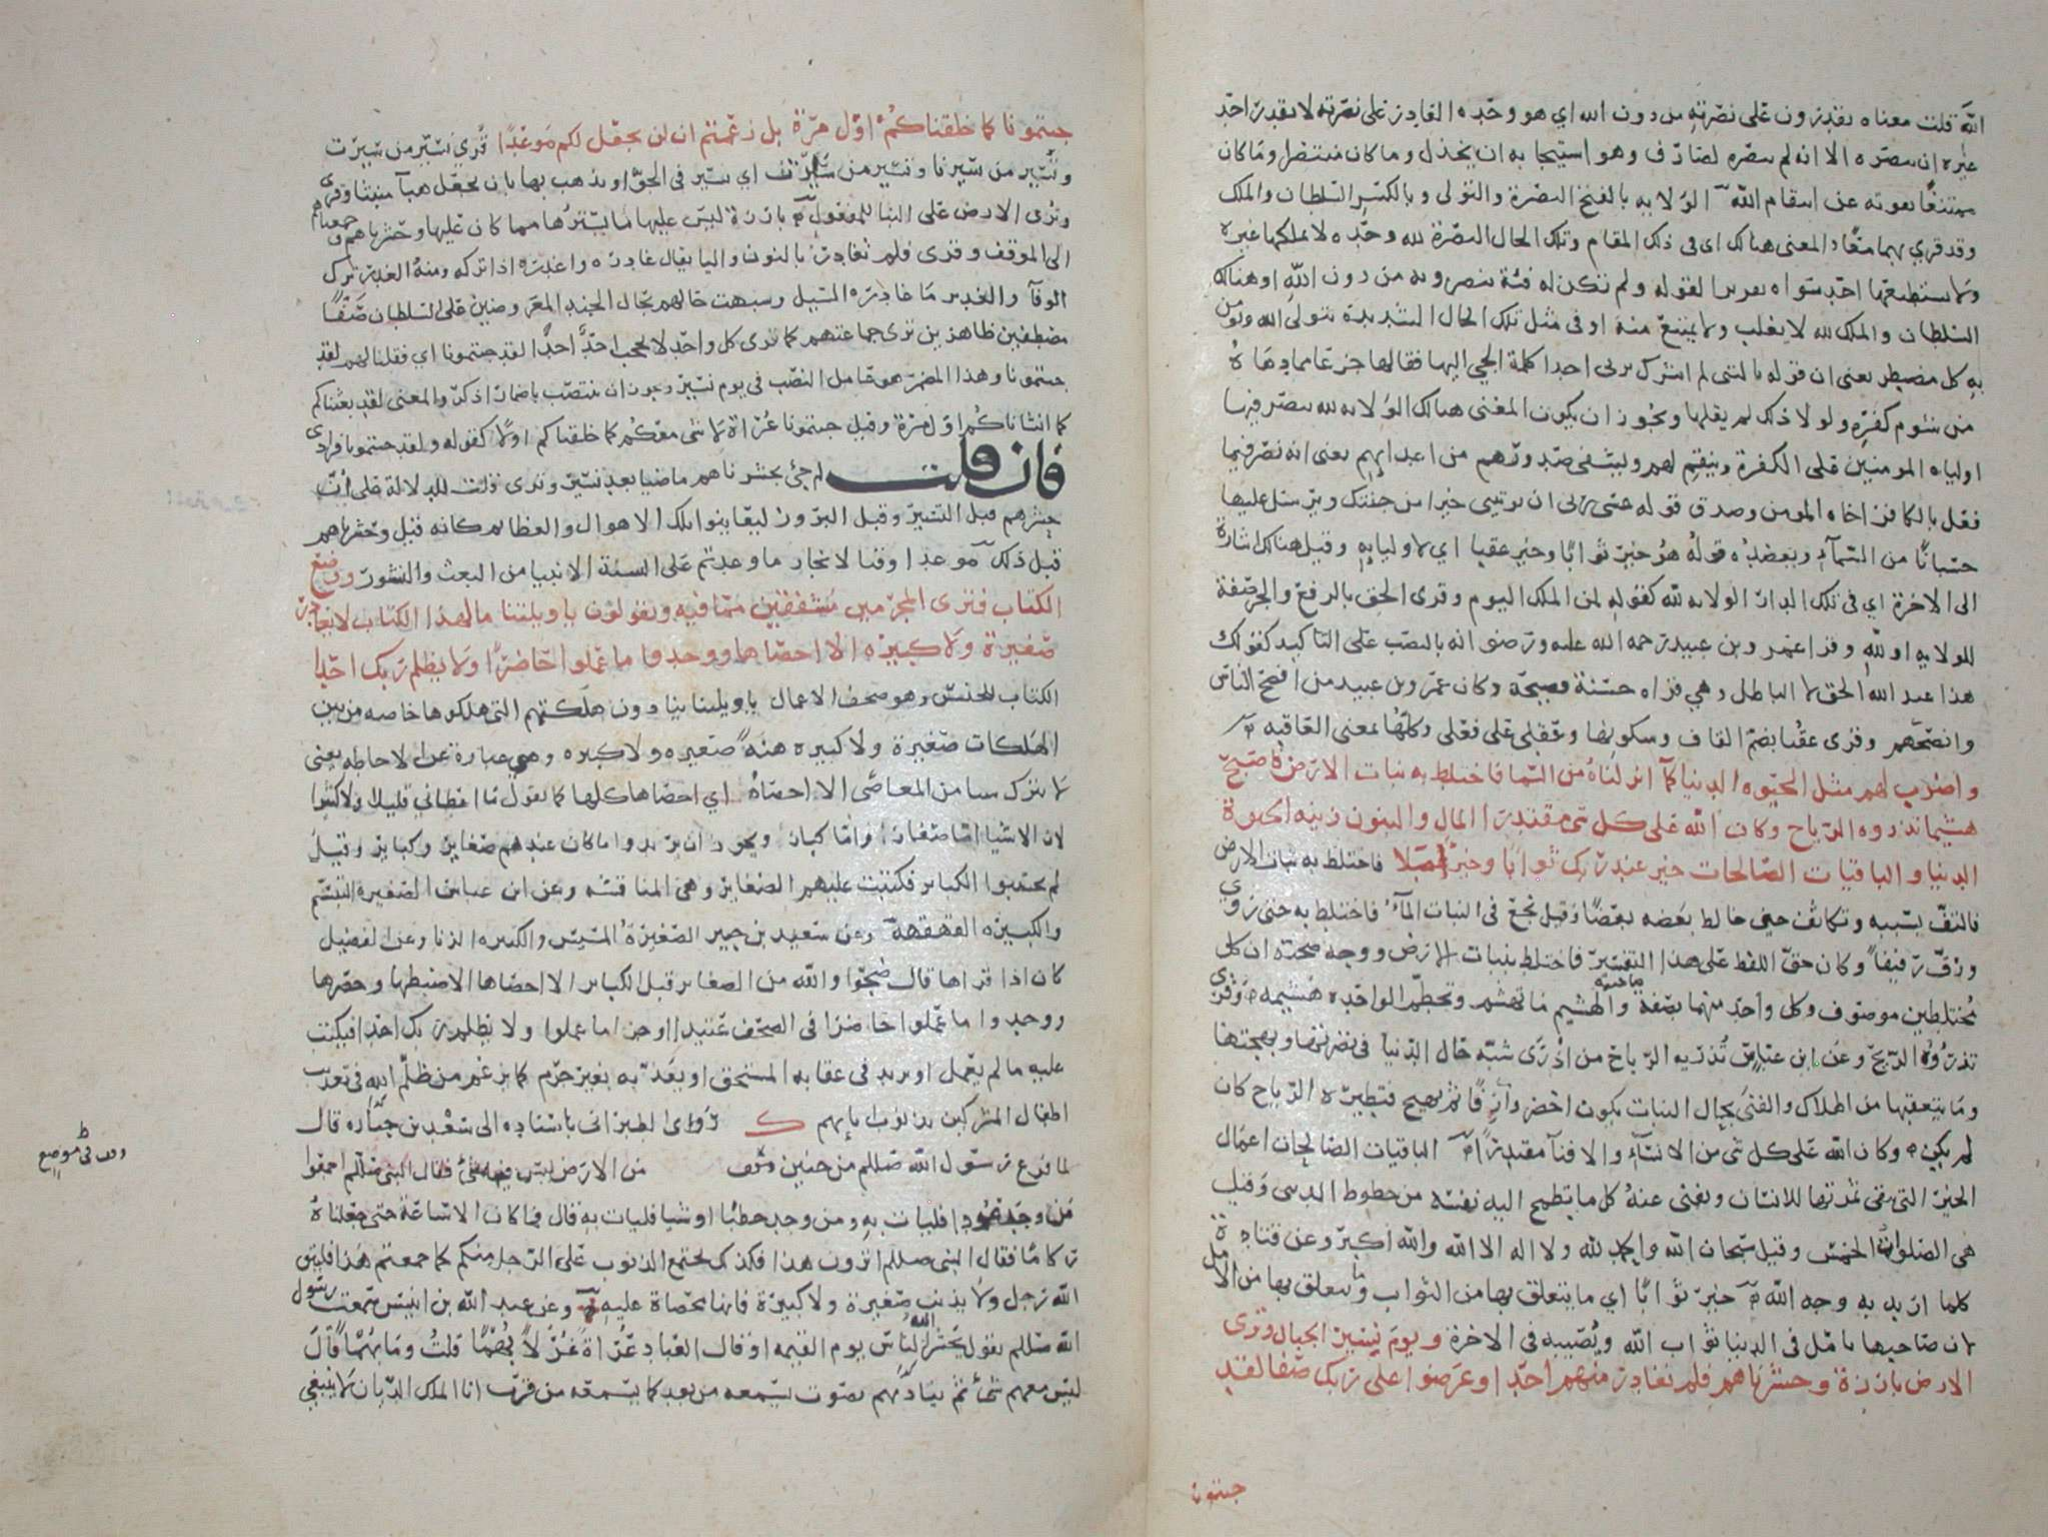 الله قلت معناه يقدرون على نصرته من دون الله اي هو وحده القادر على نصرته لا يقدر احد
غيره ان ينصره الا انه لم ينصره لصارف وهو استيجابه ان يخذل وما كان منتصرا وما كان
ممتنعا بقوته عن انتقام الله الولاية بالفتح النصرة والتولي وبالكسر السلطان والملك
وقد قري بهما معا والمعنى هنالك اي في ذلك المقام وتلك الحال النصرة لله وحده لا يملكها غيره
ولا يستطيعها احد سواه تقريرا لقوله ولم تكن له فئة ينصرونه من دون الله او هنالك
السلطان والملك لله لا يغلب ولا يمتنع منه او في مثل تلك الحال الشديدة يتولى الله ويومن
به كل مضطر يعني ان قوله يا ليتني لم اشرك بربي احدا كلمة الجي اليها فقالها جزعا مما دهاه
من شوم كفره ولولا ذلك لم يقلها ويجوز ان يكون المعنى هنالك الولاية لله ينصر فيها
اولياه المومنين على الكفرة وينتقم لهم ويشفي صدورهم من اعدائهم يعني انه نصر فيما
فعل بالكافر اخاه المومن وصدق قوله عسى ربي ان يوتيني خيرا من جنتك ويرسل عليها
حسبانا من السماء ويعضده قوله هو خير ثوابا وخير عقبا اي لاوليايه وقيل هنالك اشارة
الى الاخرة اي في تلك الدار الولاية لله كقوله لمن الملك اليوم وقرى الحق بالرفع والجر صفة
للولاية او لله وقرا عمرو بن عبيد رحمه الله عليه ورضوانه بالنصب على التاكيد كقولك
هذا عبد الله الحق لا الباطل وهي قراه حسنة فصيحة وكان عمرو بن عبيد من افصح الناس
وانصحهم وقرى عقبا بضم القاف وسكونها وعقبى على فعلى وكلها بمعنى العاقبه
واضرب لهم مثل الحيوة الدنيا كما انزلناه من السما فاختلط به نبات الارض فاصبح
هشيما تذروه الرياح وكان الله على كل شي مقتدرا المال والبنون زينة الحيوة
الدنيا والباقيات الصالحات خير عند ربك ثوابا وخير املا فاختلط به نبات الارض
فالتف بسببه وتكاثف حتى خالط بعضه بعضا وقيل نجع في النبات الماء فاختلط به حتى روي
ورف رفيفا وكان حق اللفظ على هذا التفسير فاختلط بنبات الارض ووجه صحته ان كل
مختلطين موصوف وكل واحد منهما بصفة صاحبه والهشيم ما تهشم وتحطم الواحده هشيمه وقرى
تذروه الريح وعن ابن عباس تذريه الرياح من اذرى شبه حال الدنيا في نضرتها وبهجتها
وما يتعقبها من الهلاك والفنى بحال النبات يكون اخضر وارفا ثم يهيج فتطيره الرياح كان
لم يكن وكان الله على كل شي من الانشاء والافنا مقتدرا الباقيات الصالحات اعمال
الخير التي تبقى ثمرتها للانسان ويفنى عنه كل ما يطمح اليه نفسه من حظوظ الدنيى وقيل
هي الصلوات الخمس وقيل سبحان الله والحمد لله ولا اله الا الله والله اكبر وعن قتادة
كلما اريد به وجه الله خير ثوابا اي ما يتعلق بها من الثواب وما يتعلق بها من الامل
لان صاحبها يامل في الدنيا ثواب الله ويصيبه في الاخرة ويوم نسير الجبال وترى
الارض بارزة وحشرناهم فلم نغادر منهم احدا وعرضوا على ربك صفا لقد
جيتمونا
جيتمونا كما خلقناكم اول مرة بل زعمتم ان لن نجعل لكم موعدا قري تسير من سيرت
ونسير من سيرنا وتسير من سارت اي تسير في الجو او يذهب بها بان يجعل هبآ منبثا وقرى
وترى الارض على البنا للمفعول بارزة ليس عليها ما يسترها مما كان عليها وحشرناهم وجمعناهم
الى الموقف وقرى فلم نغادر بالنون واليا يقال غادره واغدره اذا تركه ومنه الغدر ترك
الوفآ والغدير ما غادره السيل وشبهت حالهم بحال الجند المعروضين على السلطان صفا
مصطفين ظاهرين ترى جماعتهم كما ترى كل واحد لا يحجب احد احدا لقد جيتمونا اي فقلنا لهم لقد
جيتمونا وهذا المضمر هو عامل النصب في يوم نسير ويجوز ان ينتصب باضمار اذكر والمعنى لقد بعثناكم
كما انشاناكم اول مرة وقيل جيتمونا عراة لا شي معكم كما خلقناكم اولا كقوله ولقد جيتمونا فرادى
فان قلت لم جئ بحشرناهم ماضيا بعد نسير وترى قلت للدلالة على ان
حشرهم قبل التسير وقبل البروز ليعاينوا تلك الاهوال والعظايم كانه قيل وحشرناهم
قبل ذلك موعدا وقتا لانجاز ما وعدتم على السنة الانبيا من البعث والنشور ووضع
الكتاب فترى المجرمين مشفقين مما فيه ويقولون يا ويلتنا ما لهذا الكتاب لا يغادر
صغيرة ولا كبيره الا احصاها ووجدوا ما عملوا حاضرا ولا يظلم ربك احدا
الكتاب للجنس وهو صحف الاعمال يا ويلتنا ينادون هلكتهم التي هلكوها خاصه من بين
الهلكات صغيرة ولا كبيره هنة صغيره ولا كبيره وهي عبارة عن الاحاطه يعني
لا يترك شيا من المعاصى الا احصاه اي احصاها كلها كما يقول ما اعطاني قليلا ولا كثيرا
لان الاشيا اما صغار واما كبار ويجوز ان يريدوا ما كان عندهم صغاير وكباير وقيل
لم يجتنبوا الكباير فكتبت عليهم الصغاير وهي المناقشه وعن ابن عباس الصغيرة التبسم
والكبيره القهقهة وعن سعيد بن جبير الصغيرة المسيس والكبيره الزنا وعن الفضيل
كان اذا قراها قال ضجوا والله من الصغاير قبل الكباير الا احصاها الا ضبطها وحصرها
ووجدوا ما عملوا حاضرا في الصحف عتيدا او جزا ما عملوا ولا يظلم ربك احدا فيكتب
عليه ما لم يعمل او يزيد في عقابه المستحق او يعذبه بغير جرم كما يزعم من ظلم الله في تعذيب
اطفال المشركين بذنوب ابايهم ك روى الطبراني باسناده الى سعد بن جناده قال
لما فرغ رسول الله صللم من حنين من الارض ليس فيه شئ فقال النبي صللم اجمعوا
من وجد عودا فليات به ومن وجد حطبا او شيا فليات به قال فما كان الا ساعة حتى جعلناه
ركاما فقال النبي صللم اترون هذا فكذلك يجتمع الذنوب على الرجل منكم كما جمعتم هذا فليتق
الله رجل ولا يذنب صغيرة ولا كبيرة فانها محصاة عليه وعن عبد الله بن انيس سمعت رسول
الله صللم يقول يحشر الله الناس يوم القيمه او قال العباد عراة غرلا بهما قلت وما بهما قال
ليس معهم شئ ثم يناديهم بصوت يسمعه من بعد كما يسمعه من قرب انا الملك الديان لا ينبغي